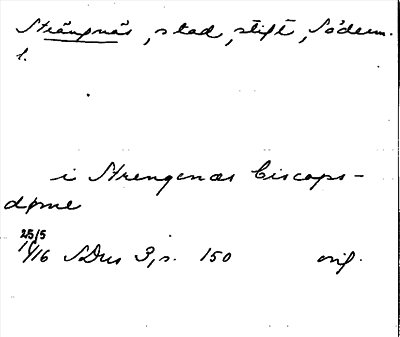 Strängnäs, stad, stift, Söderm.
l.
i Strengenæs biscops-
døme
25/5
1416 SDns 3, s. 150 orig.